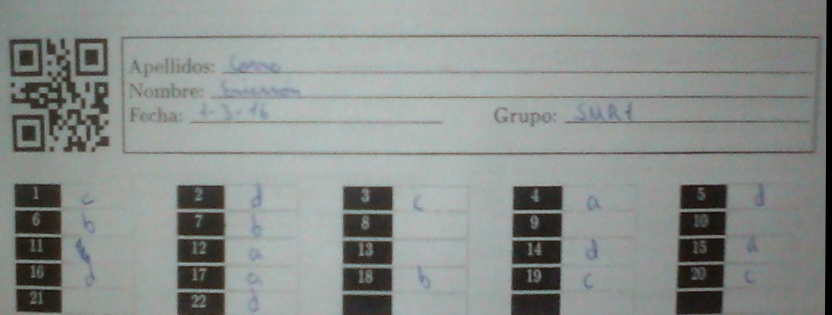 Apellidos:
Nombre:
Fecha: 1-3-16 Grupo: SUR1
1 c 2 d 3 c 4 a 5 d
6 b 7 b 8 9 10
11 12 a 13 14 d 15 a
16 d 17 a 18 b 19 c 20 c
21 22 d